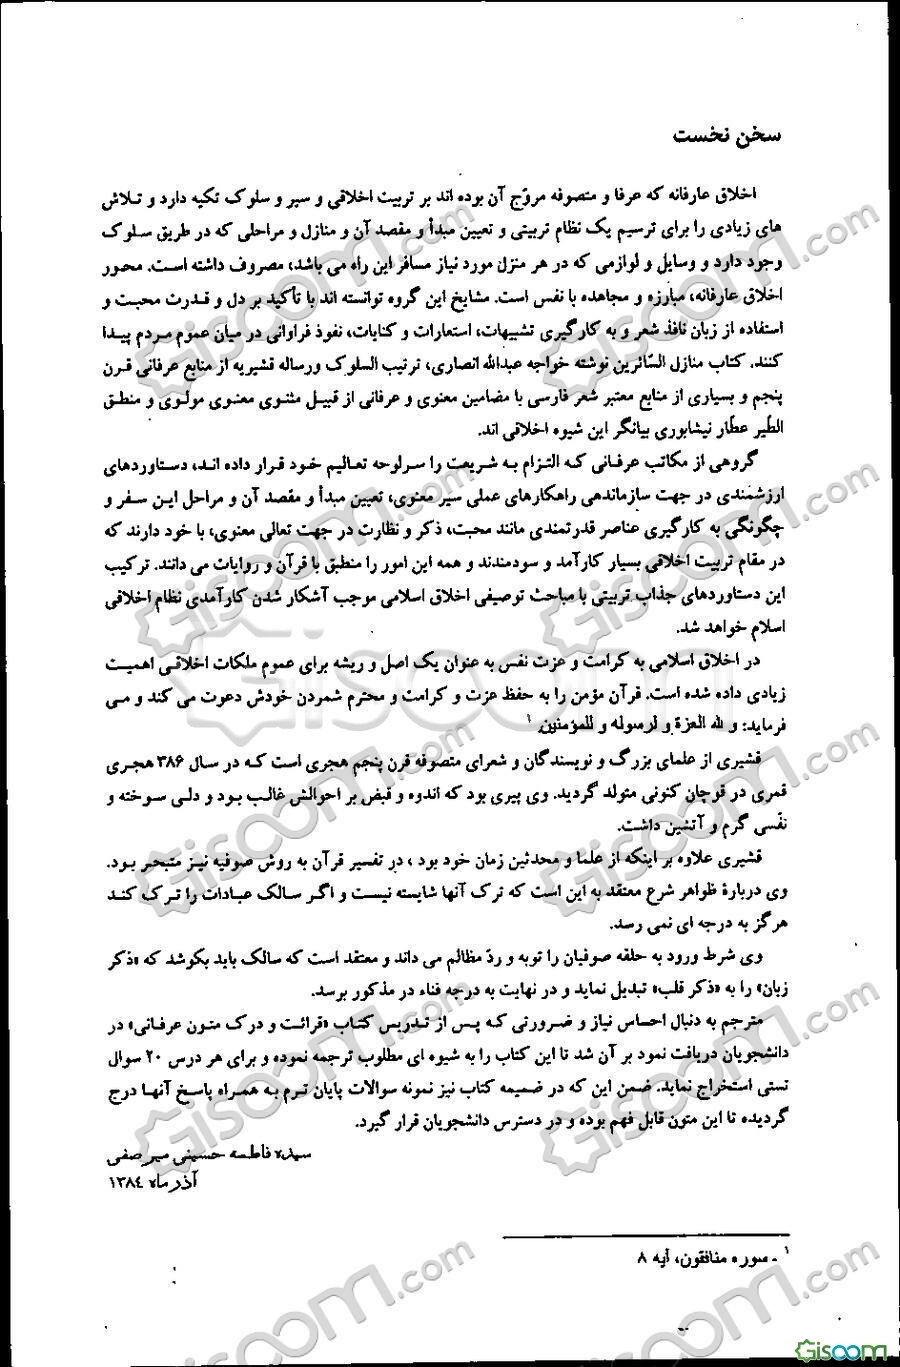 سخن نخست
اخلاق عارفانه که عرفا و متصوفه مروّج آن بوده اند بر تربیت اخلاقی و سیر و سلوک تکیه دارد و تلاش
های زیادی را برای ترسیم یک نظام تربیتی و تعیین مبدأ و مقصد آن و منازل و مراحلی که در طریق سلوک
وجود دارد و وسایل و لوازمی که در هر منزل مورد نیاز مسافر این راه می باشد، مصروف داشته است. محور
اخلاق عارفانه، مبارزه و مجاهده با نفس است. مشایخ این گروه توانسته اند با تأکید بر دل و قدرت محبت و
استفاده از زبان نافذ شعر و به کارگیری تشبیهات، استعارات و کنایات، نفوذ فراوانی در میان عموم مردم پیدا
کنند. کتاب منازل السّائرین نوشته خواجه عبدالله انصاری، ترتیب السلوک ورساله قشیریه از منابع عرفانی قرن
پنجم و بسیاری از منابع معتبر شعر فارسی با مضامین معنوی و عرفانی از قبیل مثنوی معنوی مولوی و منطق
الطّیر عطّار نیشابوری بیانگر این شیوه اخلاقی اند.
گروهی از مکاتب عرفانی که التزام به شریعت را سرلوحه تعالیم خود قرار داده اند، دستاوردهای
ارزشمندی در جهت سازماندهی راهکارهای عملی سیر معنوی، تعیین مبدأ و مقصد آن و مراحل این سفر و
چگونگی به کارگیری عناصر قدرتمندی مانند محبت، ذکر و نظارت در جهت تعالی معنوی، با خود دارند که
در مقام تربیت اخلاقی بسیار کارآمد و سودمندند و همه این امور را منطبق با قرآن و روایات می دانند. ترکیب
این دستاوردهای جذاب تربیتی با مباحث توصیفی اخلاق اسلامی موجب آشکار شدن کارآمدی نظام اخلاقی
اسلام خواهد شد.
در اخلاق اسلامی به کرامت و عزت نفس به عنوان یک اصل و ریشه برای عموم ملکات اخلاقی اهمیت
زیادی داده شده است. قرآن مؤمن را به حفظ عزت و کرامت و محترم شمردن خودش دعوت می کند و می
فرماید: و لله العزة و لرسوله و للمؤمنین. ۱
قشیری از علمای بزرگ و نویسندگان و شعرای متصوفه قرن پنجم هجری است که در سال ۳۸۶ هجری
قمری در قوچان کنونی متولد گردید. وی پیری بود که اندوه و قبض بر احوالش غالب بود و دلی سوخته و
نفّسی گرم و آتشین داشت.
قشیری علاوه بر اینکه از علما و محدثین زمان خود بود ، در تفسیر قرآن به روش صوفیه نیز متبحر بود.
وی دربارهٔ ظواهر شرع معتقد به این است که ترک آنها شایسته نیست و اگر سالک عبادات را ترک کند
هرگز به درجه ای نمی رسد.
وی شرط ورود به حلقه صوفیان را توبه و ردّ مظالم می داند و معتقد است که سالک باید بکوشد که «ذکر
زبان» را به «ذکر قلب» تبدیل نماید و در نهایت به درجه فناء در مذکور برسد.
مترجم به دنبال احساس نیاز و ضرورتی که پس از تدریس کتاب «قرائت و درک متون عرفانی» در
دانشجویان دریافت نمود بر آن شد تا این کتاب را به شیوه ای مطلوب ترجمه نموده و برای هر درس ۲۰ سوال
تستی استخراج نماید. ضمن این که در ضمیمه کتاب نیز نمونه سوالات پایان ترم به همراه پاسخ آنها درج
گردیده تا این متون قابل فهم بوده و در دسترس دانشجویان قرار گیرد.
سیده فاطمه حسینی میرصفی
آذرماه ۱۳۸٤
۱ - سوره منافقون، آیه ۸
Gisoom.com
Gisoom